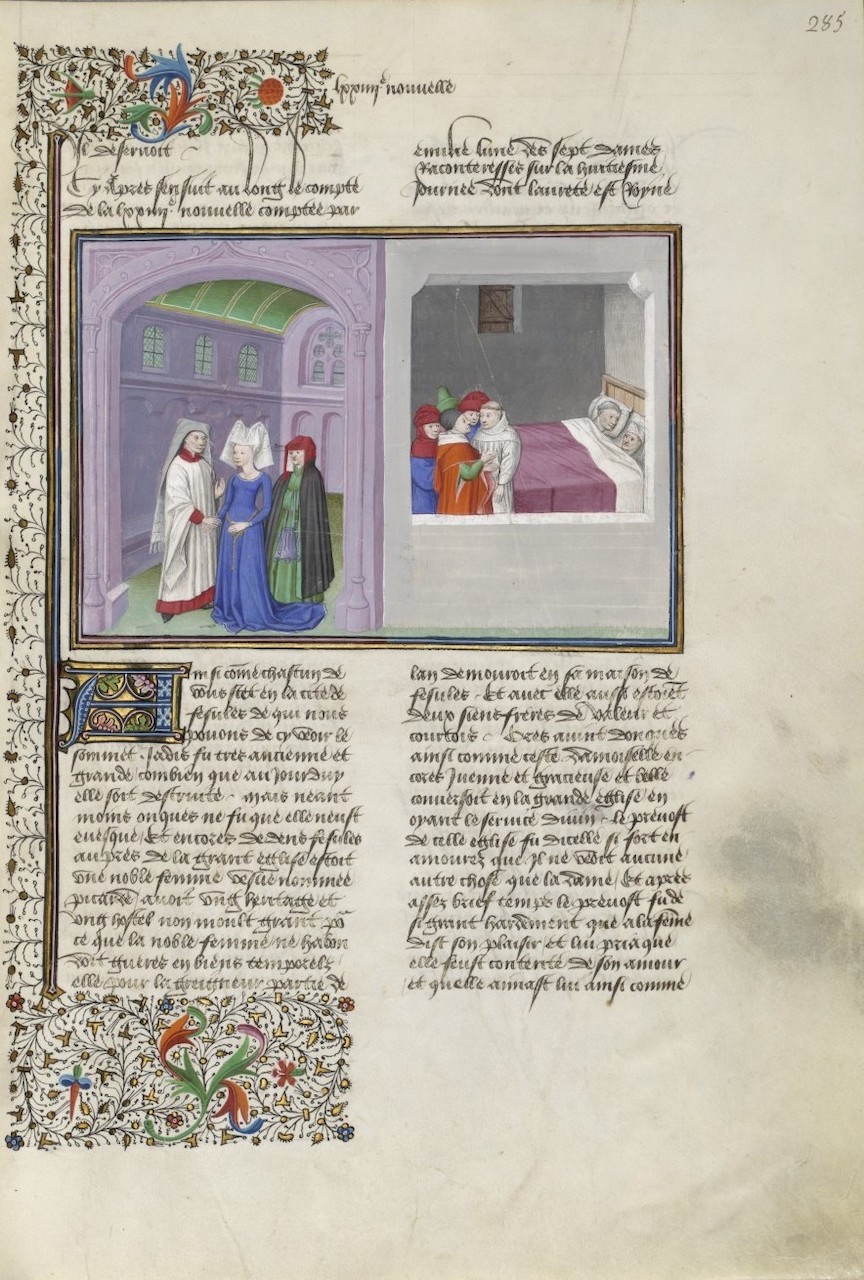 285
lxxiiiie nouuelle
Il deseruoit
Cy apres sensuit au long le compte
de la lxxiiiie nouuelle comptee par
emilie lune des sept dames
Raconteresses sur la huitiesme
Journee dont laurete est Royne
Ainsi come chascun de
vous scet en la cite de
fesules de qui nous
pouons de cy veoir le
sommet Jadis fu tres ancienne et
grande combien que au Jourduy
elle soit destruite mais neant
moins onques ne fu que elle neust
euesque Et encores dedens fesules
au pres de la grant eglise estoit
vne noble femme vesue nommee
picarde auoit vng heritage et
vng hostel non moult grant po
ce que la noble femme ne habon
doit gueres en biens temporelz
elle pour la greigneur partie de
lan demouroit en sa maison de
fesules Et auec elle aussi estoiet
deux siens freres de valeur et
courtois Ores auint donques
ainsi comme ceste damoiselle en
cores Juenne et gracieuse et belle
conuersoit en la grande eglise en
oyant le seruice diuin le preuost
de celle eglise fu dicelle si fort en
amourez que Il ne veoit aucune
autre chose que la dame Et apres
assez brief temps le preuost fu de
si grant hardement que a la feme
dist son plaisir et lui pria que
elle feust contente de son amour
et quelle aimast lui ainsi comme